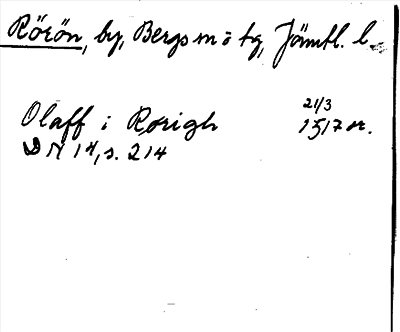 Rörön, by, Bergs m o tg, Jämtl. l.
21/3
Olaff i Rorigh 1517 or.
DN 14, s. 214